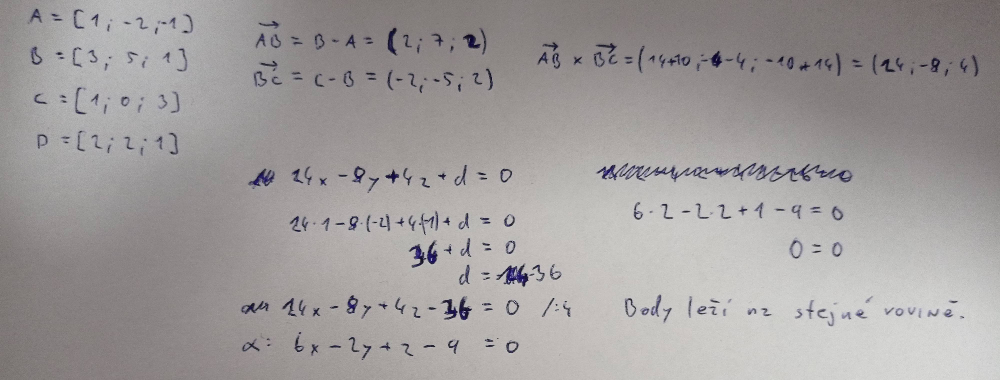 A = [1; -2; -1]
B = [3; 5; 1]
C = [1; 0; 3]
D = [2; 2; 1]
AB = B - A = (2; 7; 2)
BC = C - B = (-2; -5; 2)
AB × BC = (14+10; -4-4; -10+14) = (24; -8; 4)
24x - 8y + 4z + d = 0
24·1 - 8·(-2) + 4(-1) + d = 0
36 + d = 0
d = -36
24x - 8y + 4z - 36 = 0 /:4
α: 6x - 2y + z - 9 = 0
6·2 - 2·2 + 1 - 9 = 0
0 = 0
Body leží na stejné rovině.